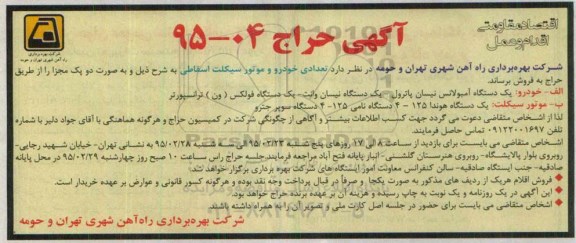 اقتصاد مقاومتی
اقدام و عمل
آگهی حراج ۰۴-۹۵
شرکت بهره برداری
راه آهن شهری تهران و حومه
شرکت بهره‌برداری راه آهن شهری تهران و حومه در نظر دارد تعدادی خودرو و موتور سیکلت اسقاطی به شرح ذیل و به صورت دو پک مجزا را از طریق
حراج به فروش برساند.
الف - خودرو: یک دستگاه آمبولانس نیسان پاترول - یک دستگاه نیسان وانت - یک دستگاه فولکس (ون) ترانسپورتر
ب- موتور سیکلت: یک دستگاه هوندا ۱۲۵ - ۴ دستگاه نامی ۱۲۵ - ۴ دستگاه سوپر جترو
لذا از اشخاص متقاضی دعوت می گردد جهت کسب اطلاعات بیشتر و آگاهی از چگونگی شرکت در کمیسیون حراج و هرگونه هماهنگی با آقای جواد دلیر با شماره
تلفن ۰۹۱۲۲۰۰۱۶۹۷ تماس حاصل فرمایند.
اشخاص متقاضی می بایست برای بازدید از ساعت ۸ الی ۱۷ روزهای پنج شنبه الی ۹۵/۰۲/۲۸ به نشانی تهران- خیابان شهید رجایی-
روبروی بلوار پالایشگاه- روبروی هنرستان گلشنی- انبار پایانه فتح آباد مراجعه فرمایند. جلسه حراج راس ساعت ۱۰ صبح روز چهارشنبه ۹۵/۰۲/۲۹ در محل پایانه
صادقیه- جنب ایستگاه صادقیه- سالن کنفرانس معاونت امور ایستگاه های شرکت بهره برداری برگزار خواهد شد.
فروش اقلام هریک از ردیف های مذکور به صورت یکجا و صرفاً در قبال پرداخت وجه نقد بوده و هرگونه کسور قانونی و عوارض بر عهده خریدار است.
این آگهی در یک روزنامه و یک نوبت به چاپ رسیده و هزینه آن بر عهده برنده حراج خواهد بود.
اشخاص متقاضی می بایست برای حضور در جلسه اصل کارت ملی و تصویر آن را به همراه داشته باشند.
شرکت بهره‌برداری راه‌آهن شهری تهران و حومه